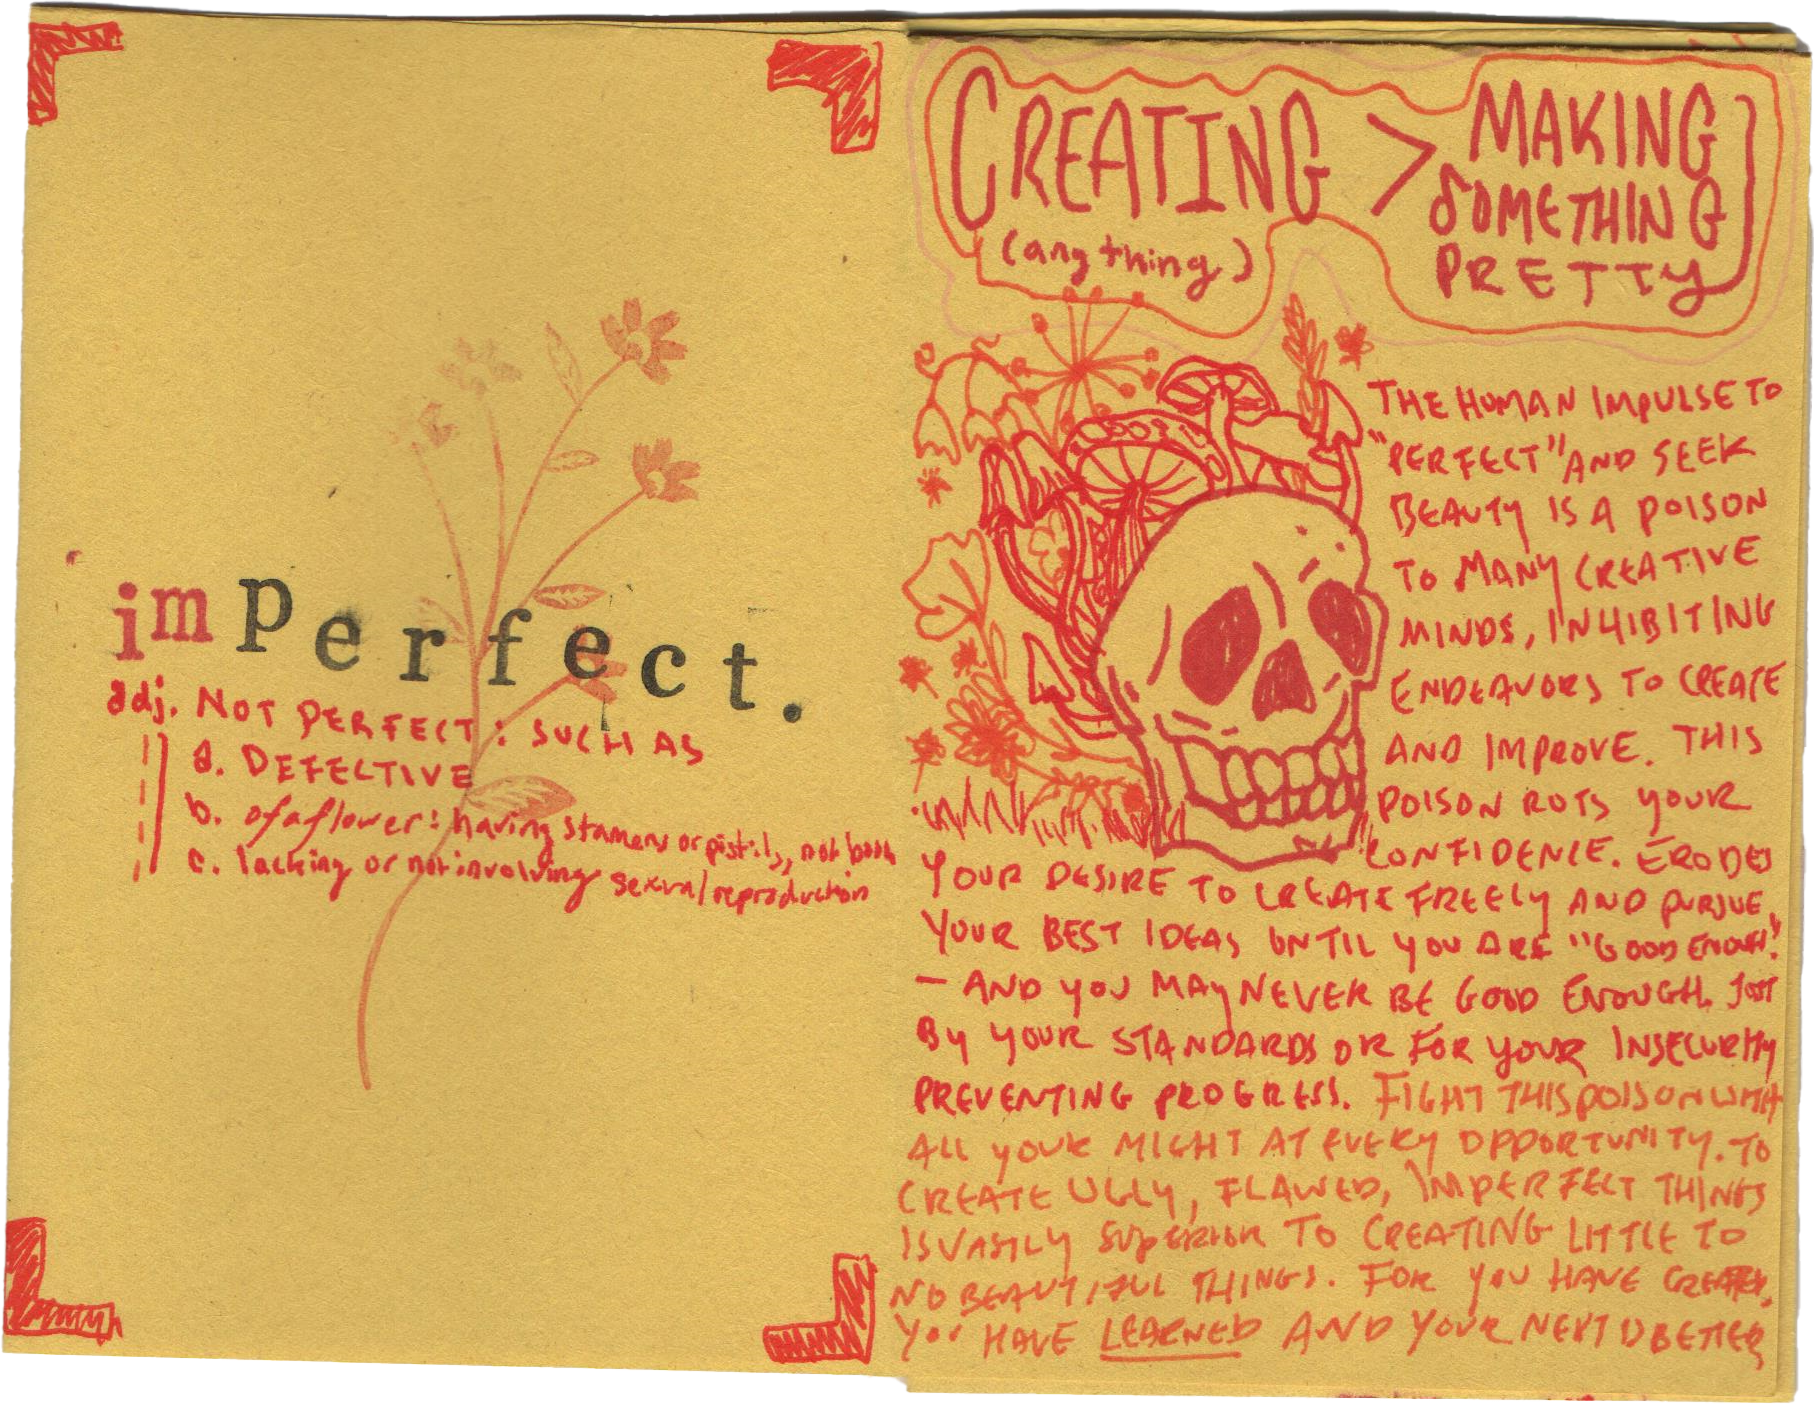 imperfect.
adj. NOT PERFECT: SUCH AS
a. DEFECTIVE
b. of a flower: having stamens or pistils, not both
c. lacking or not involving sexual reproduction
CREATING > MAKING
SOMETHING
(anything)
PRETTY
THE HUMAN IMPULSE TO
"PERFECT" AND SEEK
BEAUTY IS A POISON
TO MANY CREATIVE
MINDS, INHIBITING
ENDEAVORS TO CREATE
AND IMPROVE. THIS
POISON ROTS YOUR
CONFIDENCE. ERODES
YOUR DESIRE TO CREATE FREELY AND PURSUE
YOUR BEST IDEAS UNTIL YOU ARE "GOOD ENOUGH."
— AND YOU MAY NEVER BE GOOD ENOUGH. JUST
BY YOUR STANDARDS OR FOR YOUR INSECURITY
PREVENTING PROGRESS. FIGHT THIS POISON WITH
ALL YOUR MIGHT AT EVERY OPPORTUNITY. TO
CREATE UGLY, FLAWED, IMPERFECT THINGS
IS VASTLY SUPERIOR TO CREATING LITTLE TO
NO BEAUTIFUL THINGS. FOR YOU HAVE CREATED,
YOU HAVE LEARNED AND YOUR NEXT IS BETTER